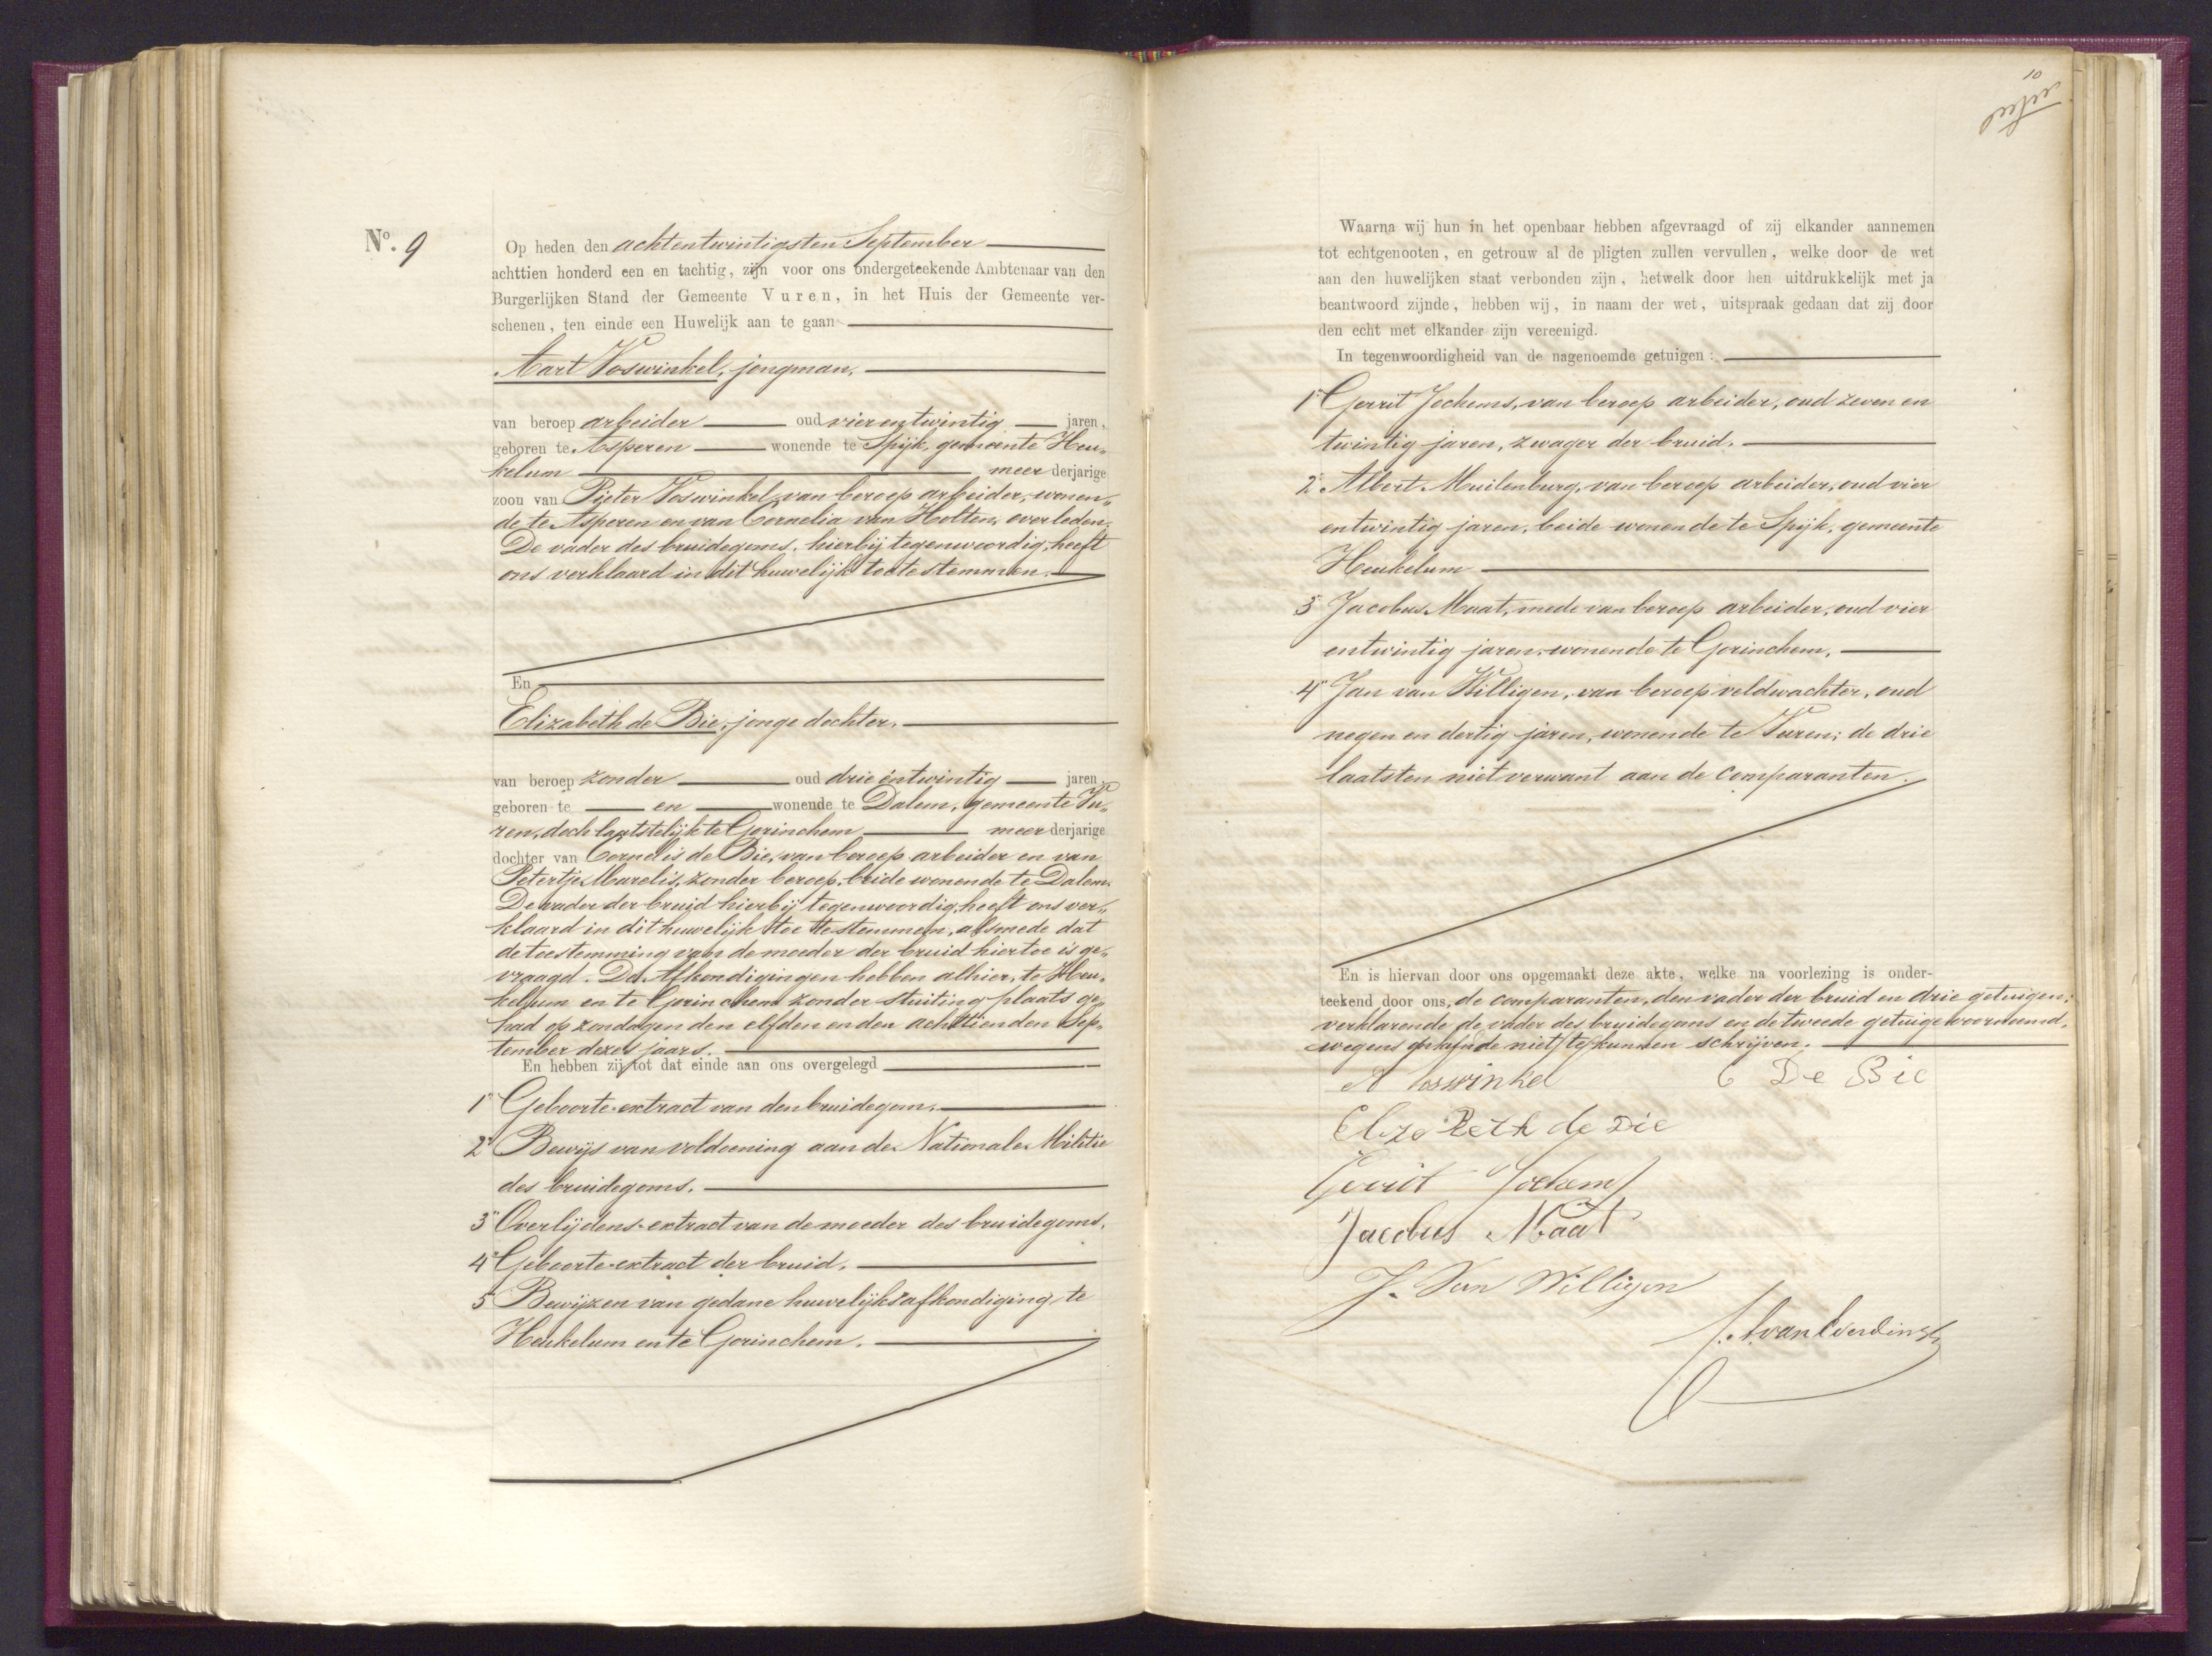 Nº. 9
Op heden den achtentwintigsten September
achttien honderd een en tachtig, zijn voor ons ondergeteekende Ambtenaar van den
Burgerlijken Stand der Gemeente Vuren, in het Huis der Gemeente ver-
schenen, ten einde een Huwelijk aan te gaan
Aart Voswinkel, jongman,
van beroep arbeider oud vier entwintig jaren,
geboren te Asperen wonende te Spijk, gemeente Heu-
kelum meer derjarige
zoon van Pieter Voswinkel, van beroep arbeider, wonen-
de te Asperen en van Cornelia van Holten, overleden.
De vader des bruidegoms, hierbij tegenwoordig, heeft
ons verklaard in dit huwelijk toe te stemmen.
En
Elizabeth de Bie, jonge dochter,
van beroep zonder oud drie entwintig jaren,
geboren te en wonende te Dalem, gemeente Vu-
ren, doch laatstelijk te Gorinchem meer derjarige
dochter van Cornelis de Bie, van beroep arbeider en van
Petertje Marelis, zonder beroep, beide wonende te Dalem.
De vader der bruid hierbij tegenwoordig, heeft ons ver-
klaard in dit huwelijk toe te stemmen, alsmede dat
de toestemming van de moeder der bruid hiertoe is ge-
vraagd. De Afkondigingen hebben alhier, te Heu-
kelum en te Gorinchem zonder stuiting plaats ge-
had op zondagen den elfden en den achttienden Sep-
tember dezes jaars.
En hebben zij tot dat einde aan ons overgelegd
1º Geboorte-extract van den bruidegom.
2º Bewijs van voldoening aan de Nationale Militie
des bruidegoms.
3º Overlijdens-extract van de moeder des bruidegoms.
4º Geboorte-extract der bruid.
5º Bewijzen van gedane huwelijksafkondiging te
Heukelum en te Gorinchem.
10
Waarna wij hun in het openbaar hebben afgevraagd of zij elkander aannemen
tot echtgenooten, en getrouw al de pligten zullen vervullen, welke door de wet
aan den huwelijken staat verbonden zijn, hetwelk door hen uitdrukkelijk met ja
beantwoord zijnde, hebben wij, in naam der wet, uitspraak gedaan dat zij door
den echt met elkander zijn vereenigd.
In tegenwoordigheid van de nagenoemde getuigen:
1º Gerrit Jochems, van beroep arbeider, oud zeven en
twintig jaren, zwager der bruid.
2º Albert Muilenburg, van beroep arbeider, oud vier
entwintig jaren, beide wonende te Spijk, gemeente
Heukelum
3º Jacobus Maat, mede van beroep arbeider, oud vier
entwintig jaren, wonende te Gorinchem.
4º Jan van Willigen, van beroep veldwachter, oud
negen en dertig jaren, wonende te Vuren; de drie
laatsten niet verwant aan de comparanten.
En is hiervan door ons opgemaakt deze akte, welke na voorlezing is onder-
teekend door ons, de comparanten, den vader der bruid en drie getuigen;
verklarende de vader des bruidegoms en de tweede getuige voornoemd,
wegens onkunde niet te kunnen schrijven.
A Voswinkel C De Bie
Elizabeth de Bie
Gerrit Jochems
Jacobus Maat
J. Van Willigen